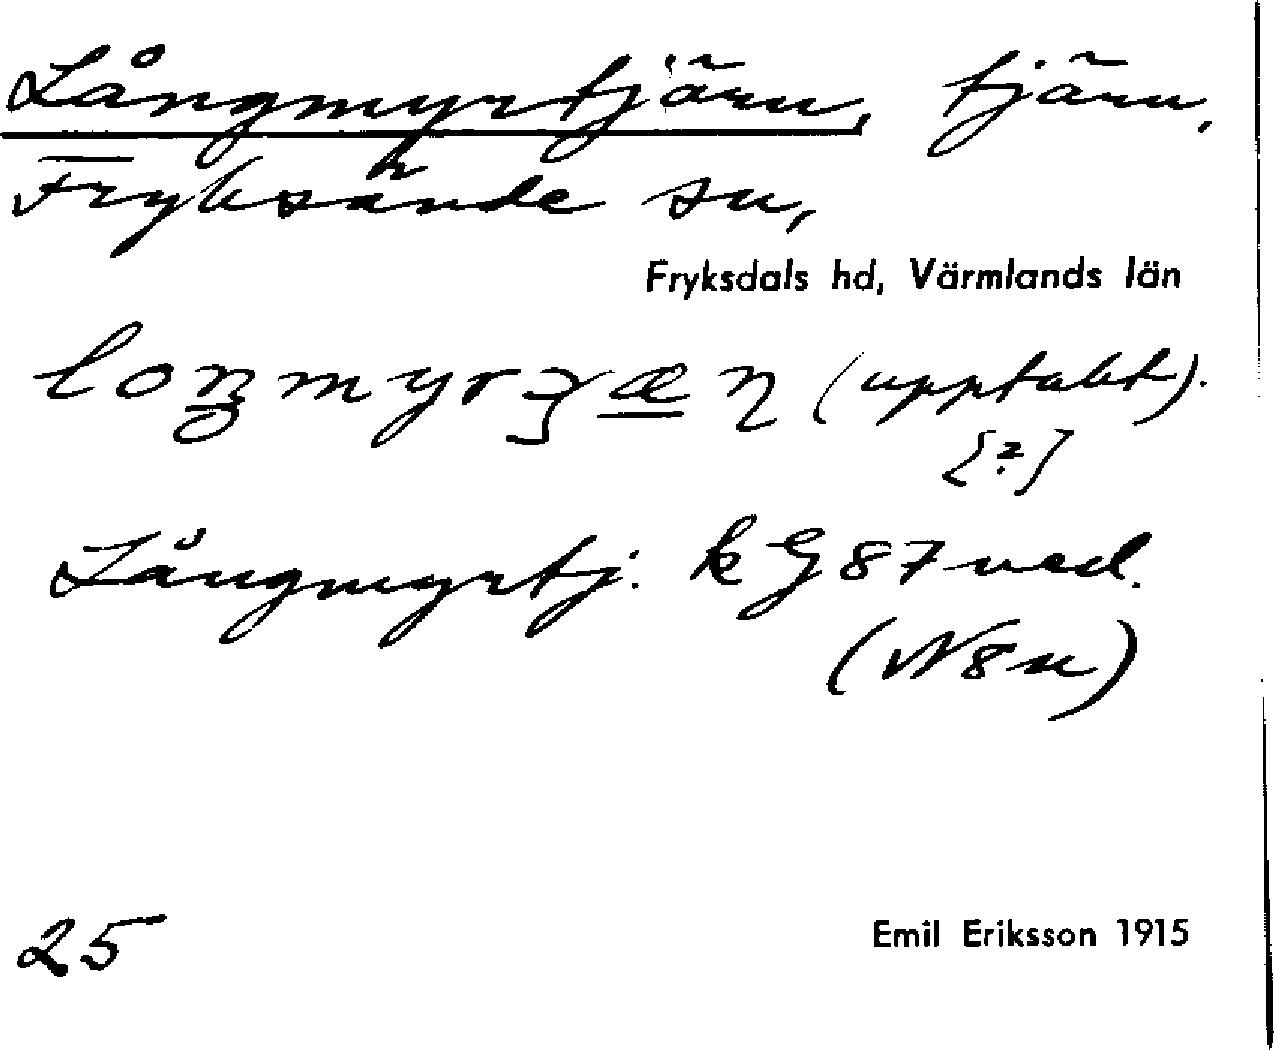 Långmyrtjärn, tjärn,
Fryksände sn,
Fryksdals hd, Värmlands län
(upptakt).
[?]
Långmyrtj. kG87ned.
(N8n)
25 Emil Eriksson 1915